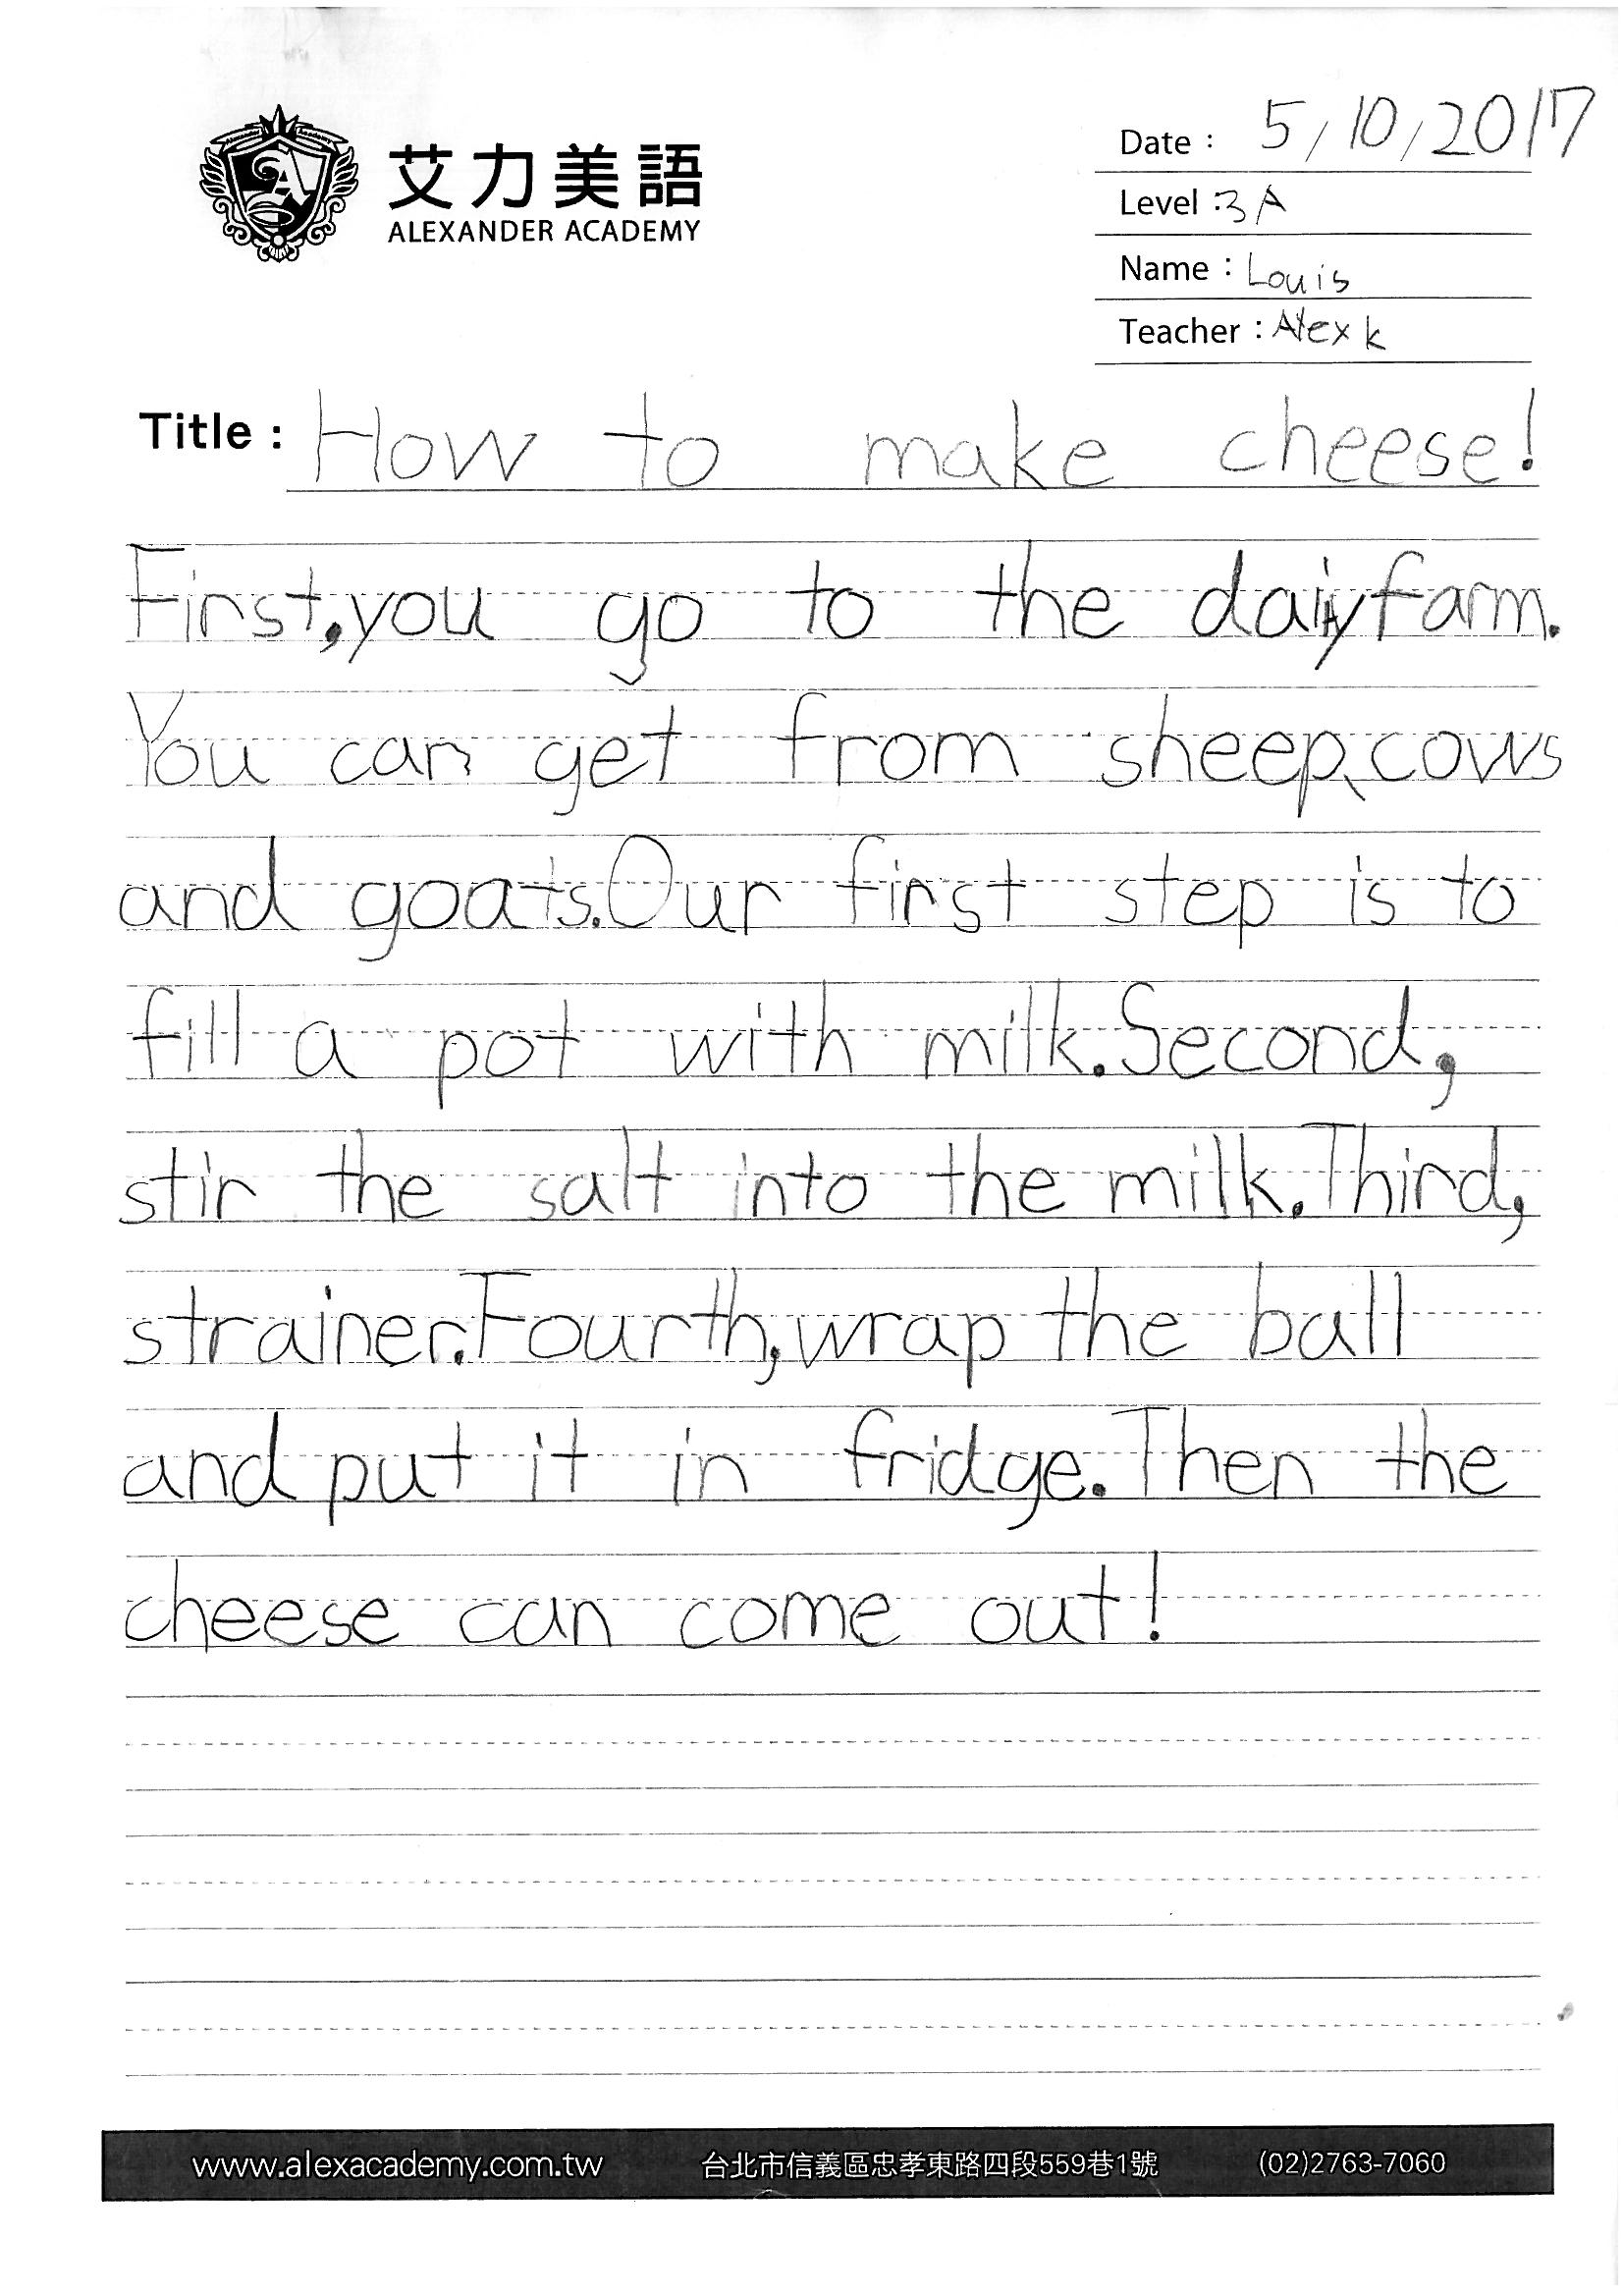 艾力美語
ALEXANDER ACADEMY
Date : 5/10/2017
Level : 3A
Name : Louis
Teacher : Alex k
Title : How to make cheese!
First, you go to the dairy farm.
You can get from sheep、cows
and goats. Our first step is to
fill a pot with milk. Second,
stir the salt into the milk. Third,
strainer. Fourth, wrap the ball
and put it in fridge. Then the
cheese can come out!
www.alexacademy.com.tw 台北市信義區忠孝東路四段559巷1號 (02)2763-7060